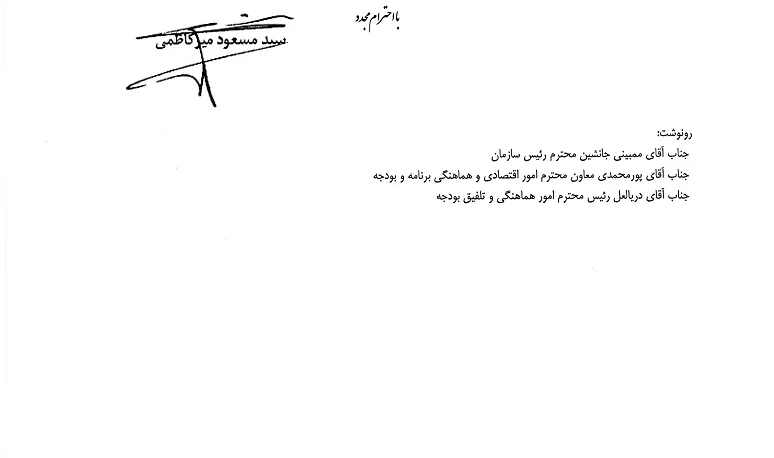 با احترام مجدد
سید مسعود میرکاظمی
رونوشت:
جناب آقای ممبینی جانشین محترم رئیس سازمان
جناب آقای پورمحمدی معاون محترم امور اقتصادی و هماهنگی برنامه و بودجه
جناب آقای دریالعل رئیس محترم امور هماهنگی و تلفیق بودجه